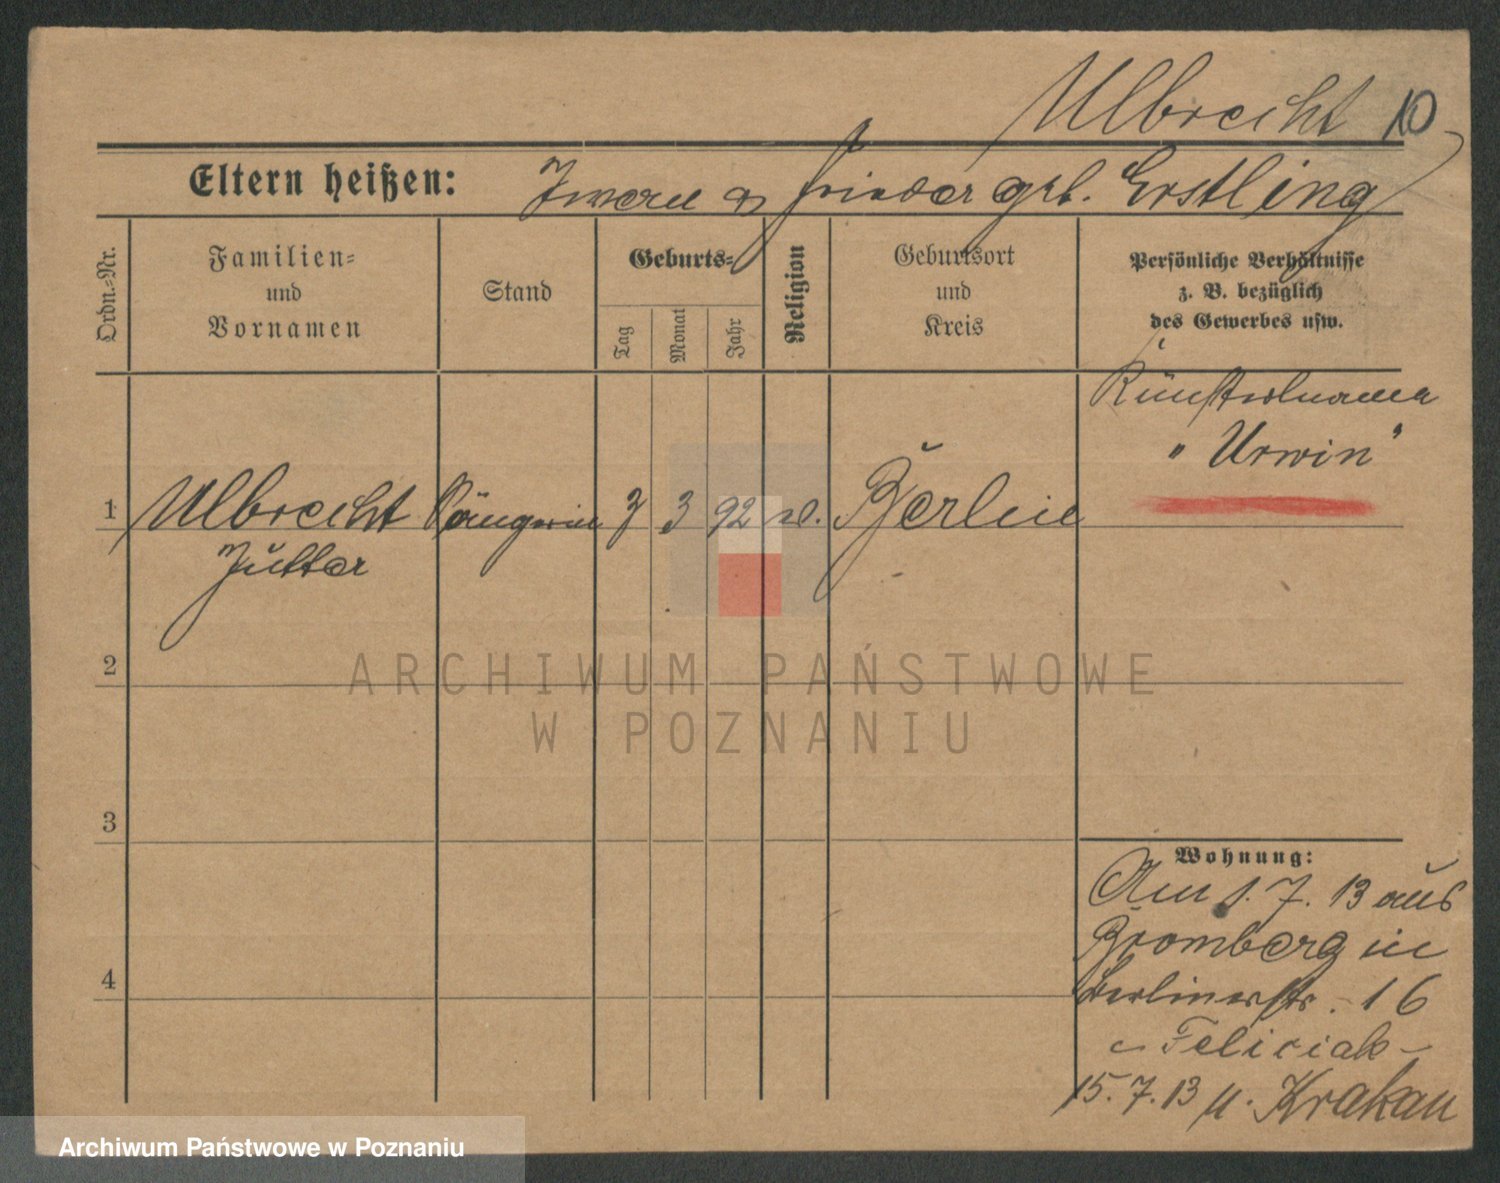 Ulbrecht 10
Eltern heißen: geb. Erstling
Ordn.-Nr.
Familien-
und
Vornamen
Stand
Geburts-
Tag
Monat
Jahr
Religion
Geburtsort
und
Kreis
Persönliche Verhältnisse
z. B. bezüglich
des Gewerbes usw.
Künstlername
"Urwin"
1 Ulbrecht Sängerin 3 92 Berlin
2
3
4
Wohnung:
Am 1. 7. 13 aus
Bromberg in
Berlinerstr. 16
- Feliciak -
15. 7. 13 n. Krakau
ARCHIWUM PAŃSTWOWE
W POZNANIU
Archiwum Państwowe w Poznaniu